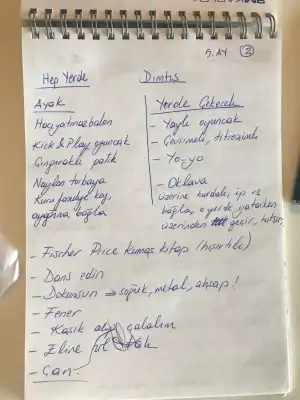 5. AY 2
Hep Yerde
Dimtıs
Ayak
Hacıyatmazbalon
Kick & Play oyuncak
Çıngıraklı patik
Naylon torbaya
Kuru fasulye koy,
ayağına bağla
Yerde Çekecek
- Yaylı oyuncak
- Çevirmeli, titreşimli
- Yo-yo
- Oklava
üzerine kurdale, ip vs
bağla, o yerde yatarken
üzerinden geçir, tutsun
- Fischer Price Kumaş kitap (hışırtılı)
- Dans edin
- Dokunsun ⇒ soğuk, metal, ahşap!
- Fener
- Kaşık çalalım
- Eline
- Çan